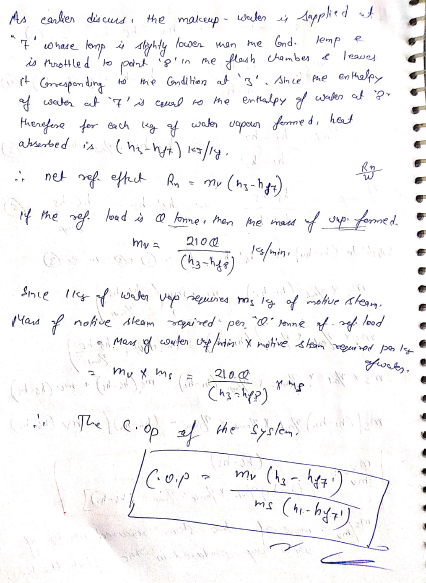 As earlier discuss, the makeup-water is supplied at
"7" whose temp is slightly lower than the Cond. temp &
is throttled to point '8' in the flash chamber & leaves
it Corresponding to the Condition at '3'. Since the enthalpy
of water at '7' is equal to the enthalpy of water at '8'
therefore for each kg of water vapour formed, heat
absorbed is (h3-hf7) kJ/kg.
∴ net ref. effect Rn = mv (h3-hf7). Rn/W
If the ref. load is Q tonne, then the mass of vap. formed.
mv = 210Q / (h3-hf8) kg/min.
Since 1kg of water vap requires ms kg of motive steam.
Mass of motive steam required per "Q" tonne of ref load
= Mass of water vap/min x motive steam required per kg
of water.
= mv x ms = 210Q / (h3-hf8) x ms
∴ The C.op of the system.
C.O.P = mv (h3 - hf7') / ms (h1 - hf7')